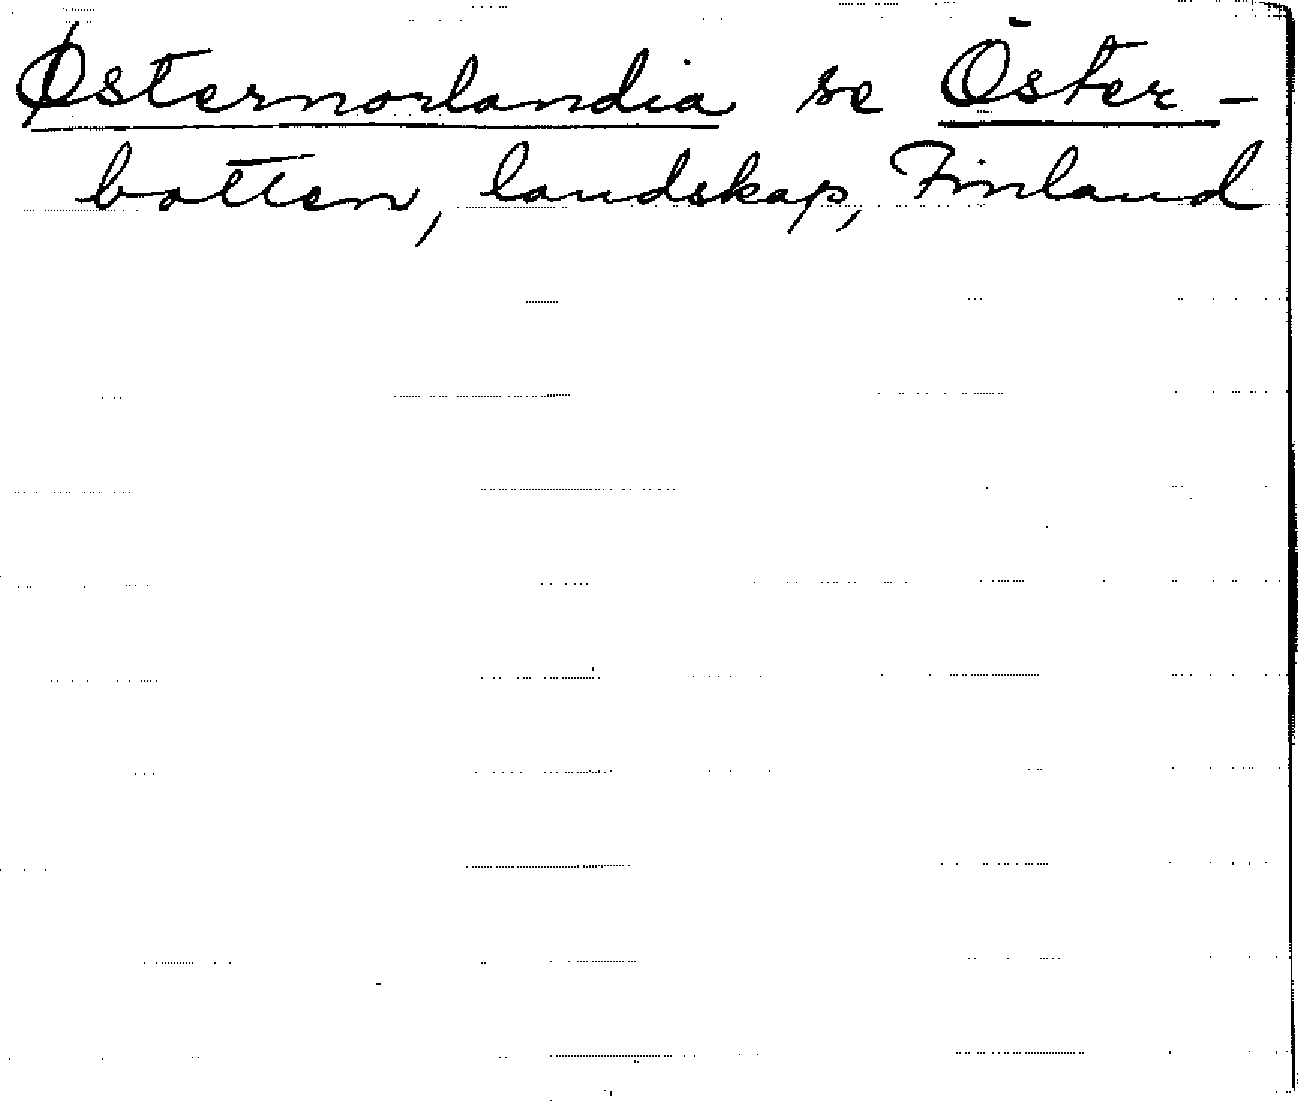 Østernorlandia se Öster-
botten, landskap, Finland